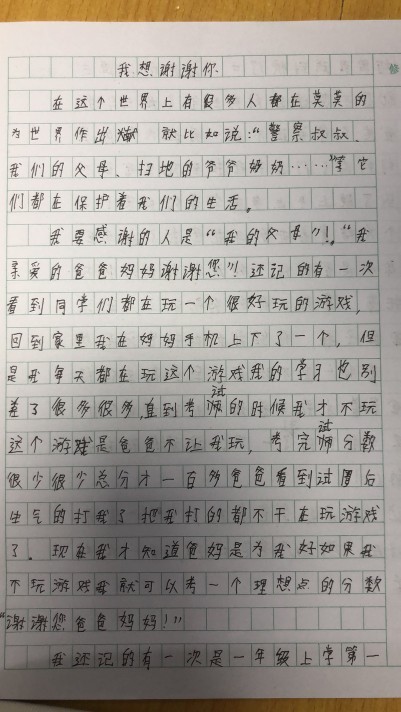 我想谢谢你
在这个世界上有很多人都在莫莫的
为世界作出献 就比如说:“警察叔叔、
我们的父母、扫地的爷爷奶奶……”等它
们都在保护着我们的生活。
我要感谢的人是“我的父母”!“我
亲爱的爸爸妈妈谢谢您”!还记的有一次
看到同学们都在玩一个很好玩的游戏,
回到家里我在妈妈手机上下了一个,但
是我每天都在玩这个游戏我的学习也别
差了很多很多,直到考试的时候我才不玩
这个游戏是爸爸不让我玩,考完试分数
很少很少总分才一百多爸爸看到试圈后
生气的打我了把我打的都不干在玩游戏
了。现在我才知道爸妈是为我好如果我
不玩游戏我就可以考一个理想点的分数
“谢谢您爸爸妈妈!”
我还记的有一次是一年级上学第一